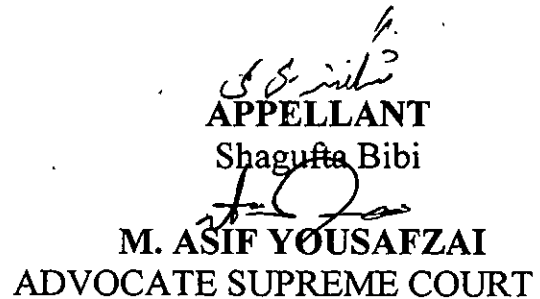 شگفتہ بی بی
APPELLANT
Shagufta Bibi
M. ASIF YOUSAFZAI
ADVOCATE SUPREME COURT